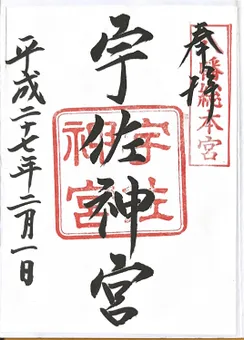 奉拝
八幡総本宮
宇佐神宮
宇佐
神宮
平成二十七年二月一日